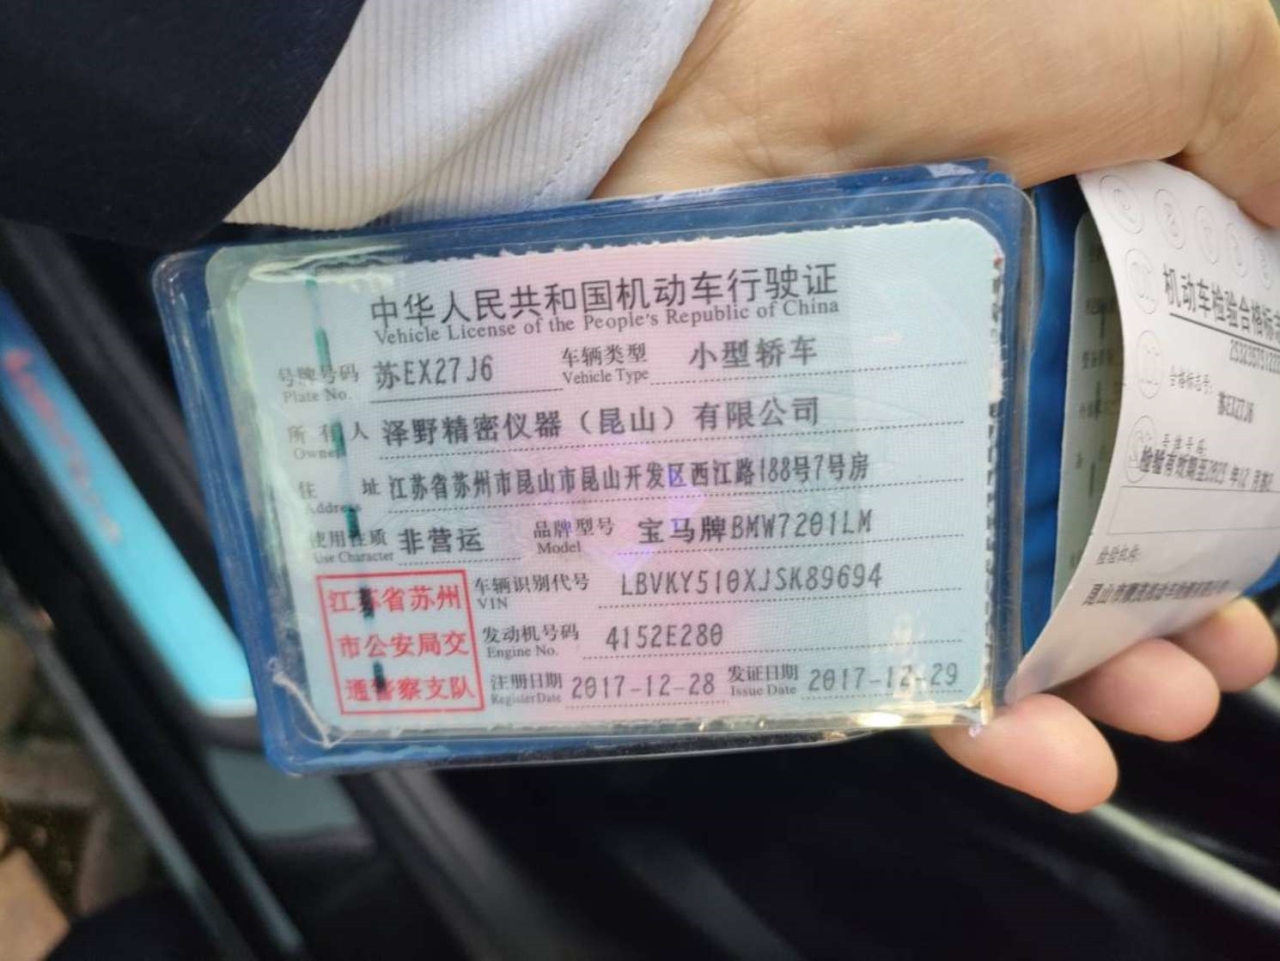 中华人民共和国机动车行驶证
Vehicle License of the People's Republic of China
号牌号码 苏EX27J6 车辆类型 小型轿车
Plate No. Vehicle Type
所有人 泽野精密仪器（昆山）有限公司
Owner
住址 江苏省苏州市昆山市昆山开发区西江路188号7号房
Address
使用性质 非营运 品牌型号 宝马牌BMW7201LM
Use Character Model
江苏省苏州
市公安局交
通警察支队
车辆识别代号 LBVKY510XJSK89694
VIN
发动机号码 4152E280
Engine No.
注册日期 2017-12-28 发证日期 2017-12-29
Register Date Issue Date
机动车检验合格标
合格标志号:
苏EX27J6
号牌号码:
检验有效期至
检验机构:
昆山市